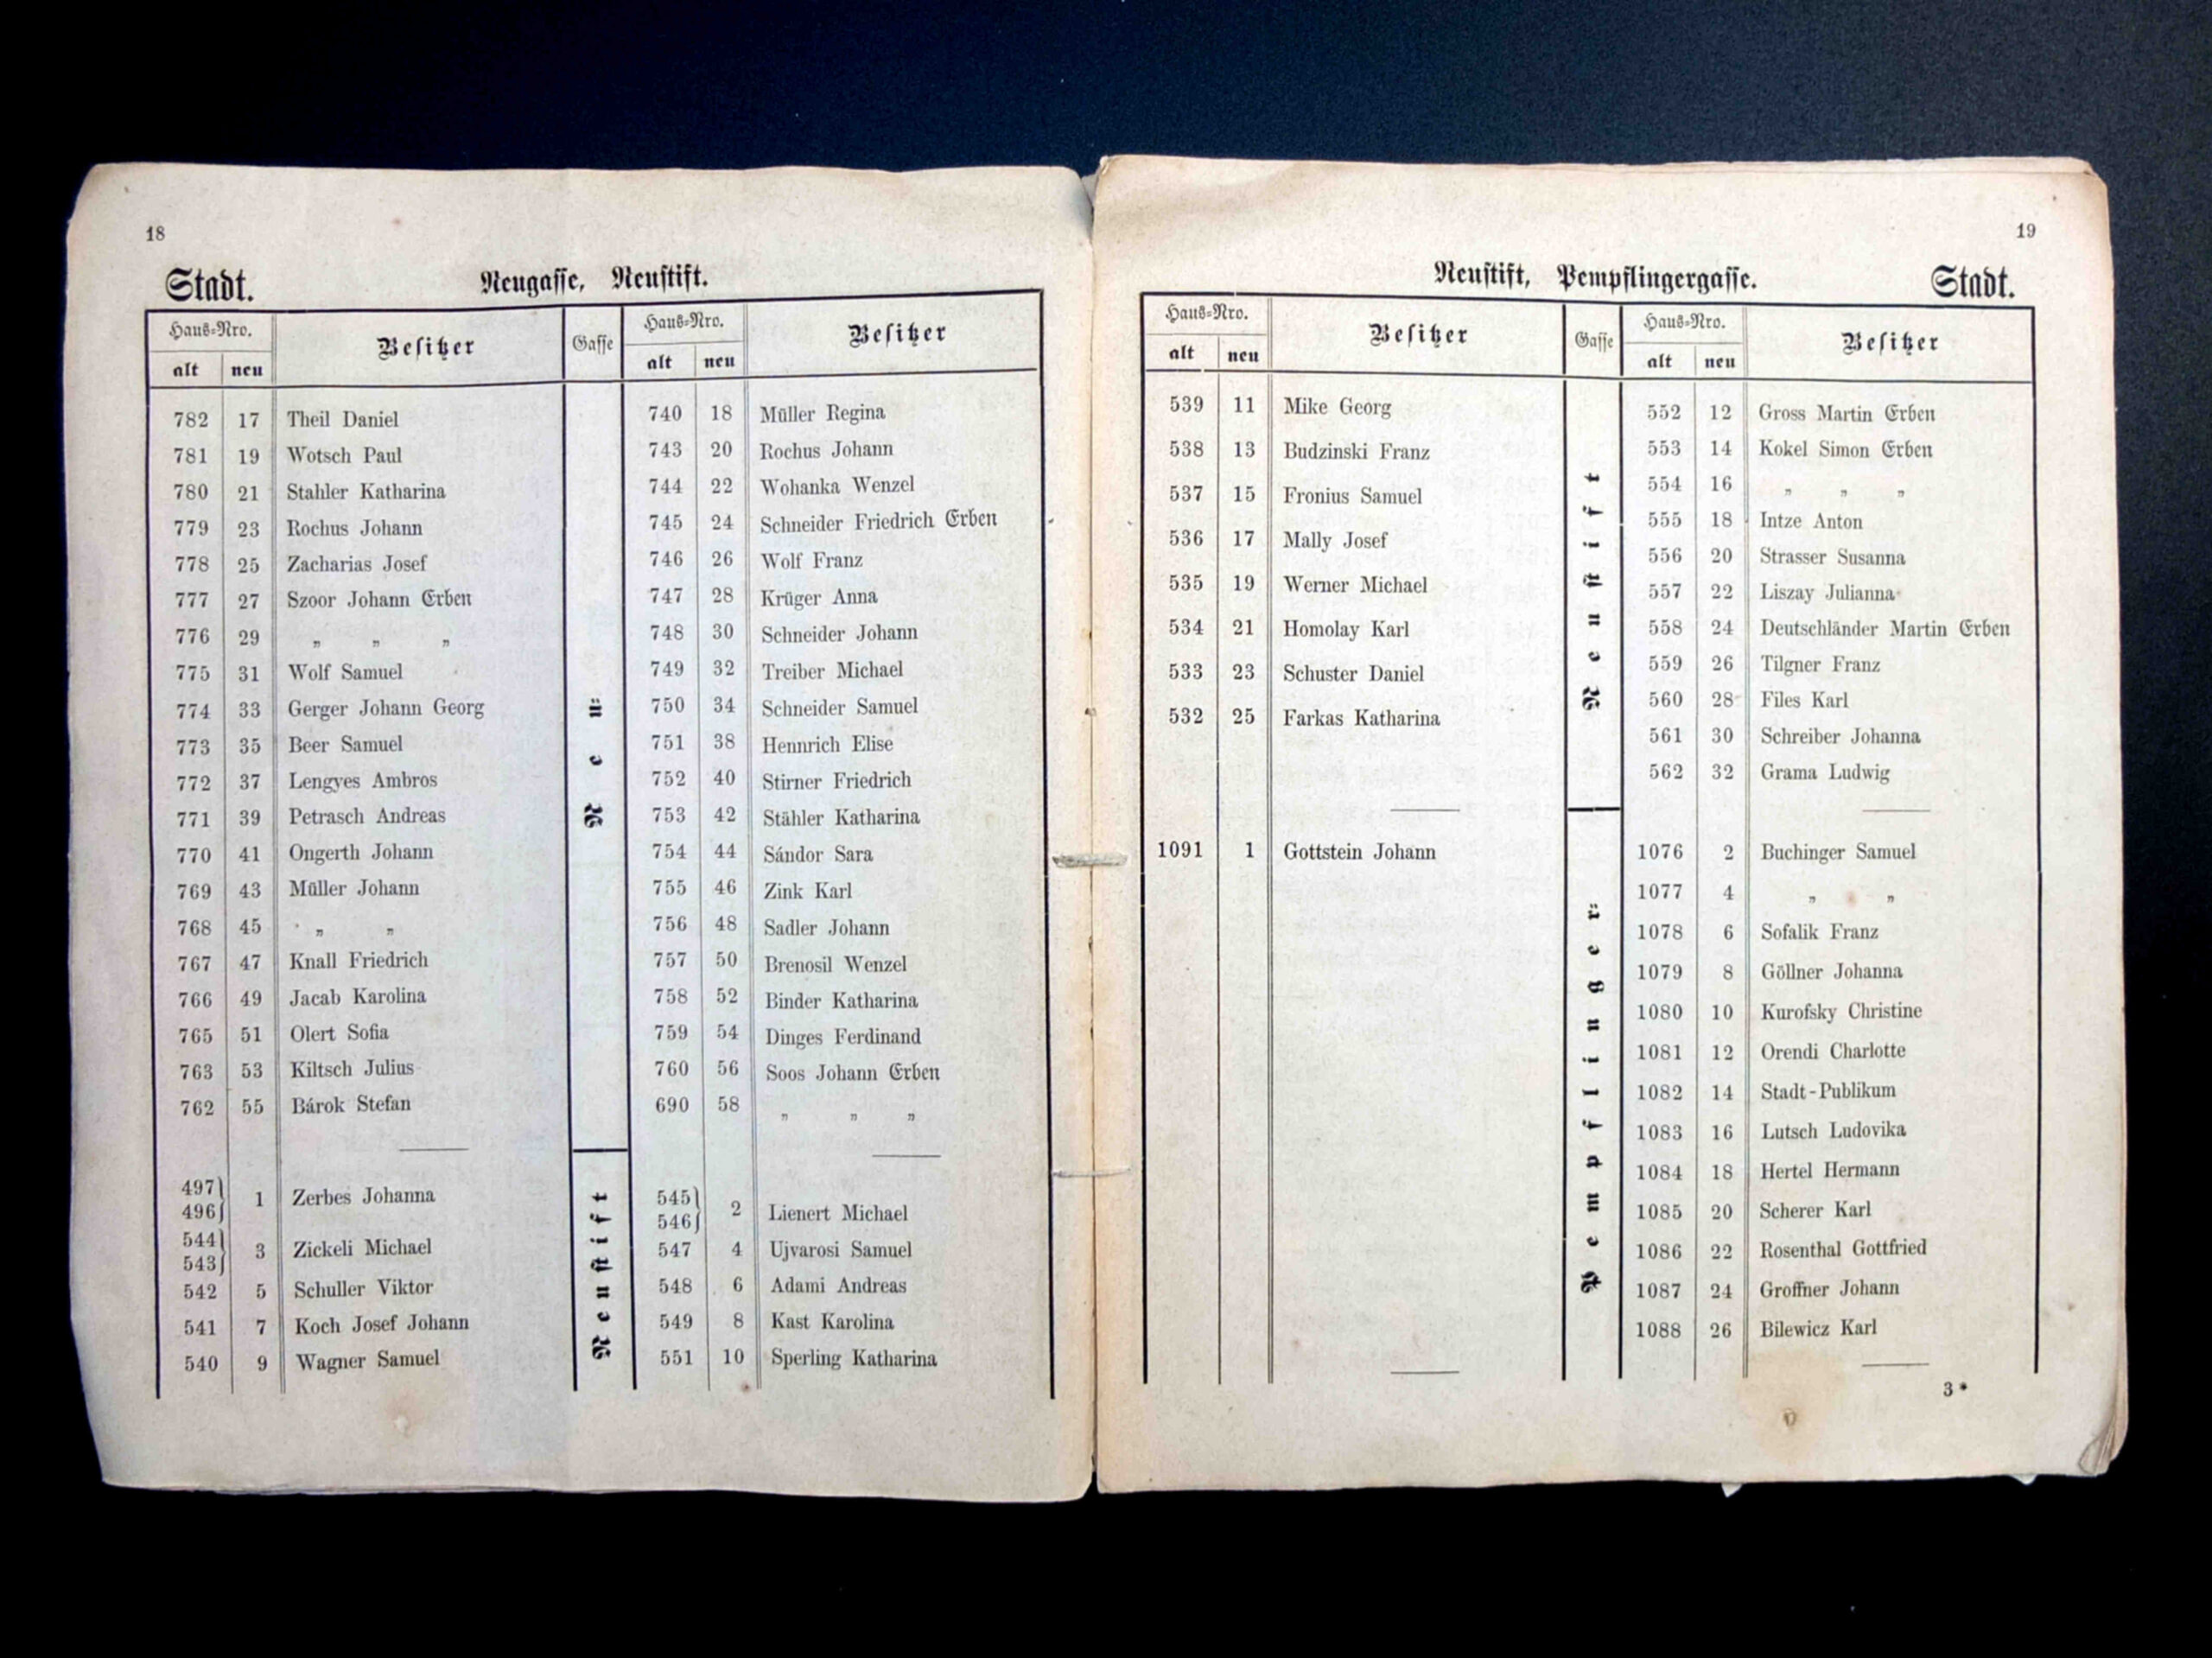 18
Stadt. Neugasse, Neustift.
Haus-Nro. Besitzer Gasse Haus-Nro. Besitzer
alt neu alt neu
782 17 Theil Daniel 740 18 Müller Regina
781 19 Wotsch Paul 743 20 Rochus Johann
780 21 Stahler Katharina 744 22 Wohanka Wenzel
779 23 Rochus Johann 745 24 Schneider Friedrich Erben
778 25 Zacharias Josef 746 26 Wolf Franz
777 27 Szoor Johann Erben 747 28 Krüger Anna
776 29 „ „ „ 748 30 Schneider Johann
775 31 Wolf Samuel 749 32 Treiber Michael
774 33 Gerger Johann Georg 750 34 Schneider Samuel
773 35 Beer Samuel 751 38 Hennrich Elise
772 37 Lengyes Ambros 752 40 Stirner Friedrich
771 39 Petrasch Andreas 753 42 Stähler Katharina
770 41 Ongerth Johann 754 44 Sándor Sara
769 43 Müller Johann 755 46 Zink Karl
768 45 „ „ 756 48 Sadler Johann
767 47 Knall Friedrich 757 50 Brenosil Wenzel
766 49 Jacab Karolina 758 52 Binder Katharina
765 51 Olert Sofia 759 54 Dinges Ferdinand
763 53 Kiltsch Julius 760 56 Soos Johann Erben
762 55 Bárok Stefan 690 58 „ „ „
Neu=
497} 496} 1 Zerbes Johanna 545} 546} 2 Lienert Michael
544} 543} 3 Zickeli Michael 547 4 Ujvarosi Samuel
542 5 Schuller Viktor 548 6 Adami Andreas
541 7 Koch Josef Johann 549 8 Kast Karolina
540 9 Wagner Samuel 551 10 Sperling Katharina
Neustift
19
Neustift, Pempflingergasse. Stadt.
Haus-Nro. Besitzer Gasse Haus-Nro. Besitzer
alt neu alt neu
539 11 Mike Georg 552 12 Gross Martin Erben
538 13 Budzinski Franz 553 14 Kokel Simon Erben
537 15 Fronius Samuel 554 16 „ „ „
536 17 Mally Josef 555 18 Intze Anton
535 19 Werner Michael 556 20 Strasser Susanna
534 21 Homolay Karl 557 22 Liszay Julianna
533 23 Schuster Daniel 558 24 Deutschländer Martin Erben
532 25 Farkas Katharina 559 26 Tilgner Franz
560 28 Files Karl
561 30 Schreiber Johanna
562 32 Grama Ludwig
Neustift
1091 1 Gottstein Johann 1076 2 Buchinger Samuel
1077 4 „ „
1078 6 Sofalik Franz
1079 8 Göllner Johanna
1080 10 Kurofsky Christine
1081 12 Orendi Charlotte
1082 14 Stadt-Publikum
1083 16 Lutsch Ludovika
1084 18 Hertel Hermann
1085 20 Scherer Karl
1086 22 Rosenthal Gottfried
1087 24 Groffner Johann
1088 26 Bilewicz Karl
Pempflinger=
3*